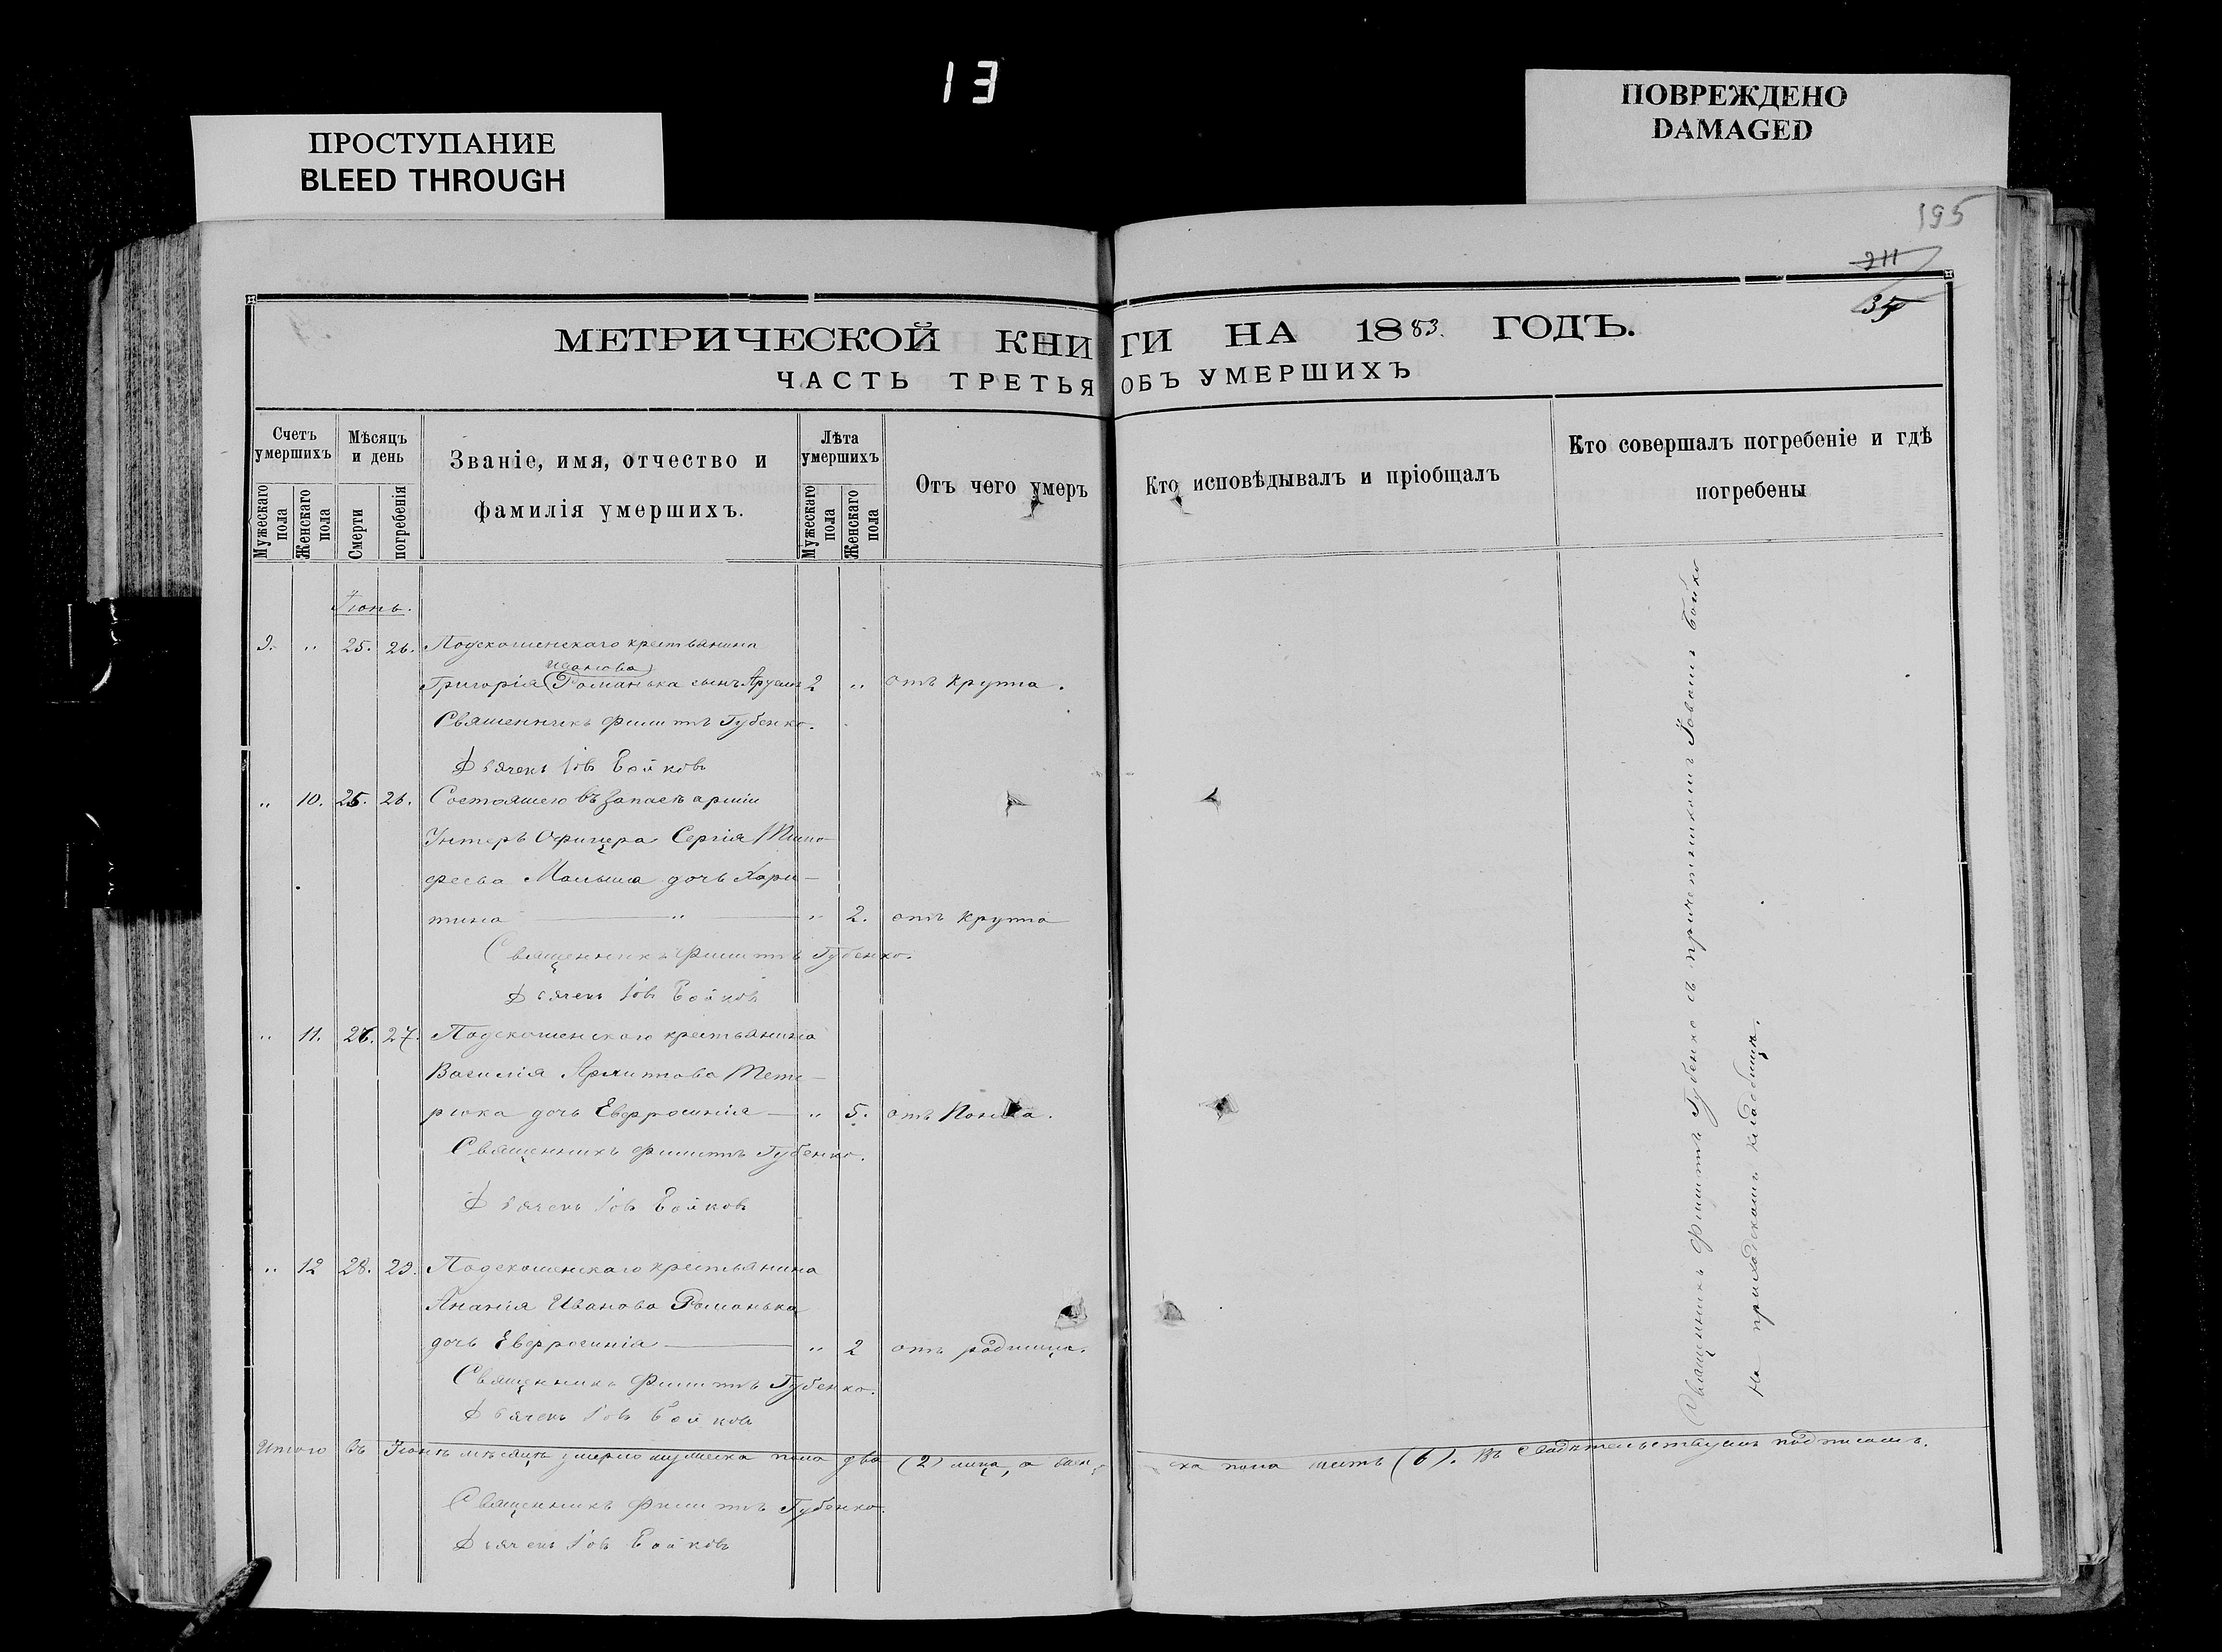 13
ПРОСТУПАНИЕ
BLEED THROUGH
ПОВРЕЖДЕНО
DAMAGED
195
211
МЕТРИЧЕСКОЙ КНИГИ НА 1883. ГОДЪ.
ЧАСТЬ ТРЕТЬЯ ОБЪ УМЕРШИХЪ
Счетъ умершихъ
Мужескаго пола
Женскаго пола
Мѣсяцъ и день
Смерти
погребенія
Званіе, имя, отчество и
фамилія умершихъ.
Лѣта умершихъ
Мужескаго пола
Женскаго пола
Отъ чего умеръ
Кто исповѣдывалъ и пріобщалъ
Кто совершалъ погребеніе и гдѣ
погребены
Іюнь.
9. " 25. 26. крестьянина
Иванова
Григорія Романька сынъ 2 " отъ крупа.
Священникъ Филиппъ Губенко.
Дьячекъ Іовъ Бойковъ
" 10. 25. 26. Состоящего въ запасѣ арміи
Унтеръ Офицера Сергія Тимо-
феева Малыша дочь Хари-
тина " " 2. отъ крупа
Священникъ Филиппъ Губенко.
Дьячекъ Іовъ Бойковъ
" 11. 26. 27. крестьянина
Василія Тете-
рюка дочь Евфросинія " 5. отъ
Священникъ Филиппъ Губенко.
Дьячекъ Іовъ Бойковъ
" 12 28. 29. крестьянина
Ананія Иванова Романька
дочь Евфросинія " 2 отъ родимца.
Священникъ Филиппъ Губенко.
Дьячекъ Іовъ Бойковъ
Священникъ Филиппъ Губенко съ причетникомъ Іовомъ Бойко
На приходскомъ кладбищѣ.
Итого въ Іюнѣ мѣсяцѣ умерло мужеска пола два (2) лица, а жен-ска пола (6). Въ подписомъ.
Священникъ Филиппъ Губенко.
Дьячекъ Іовъ Бойковъ